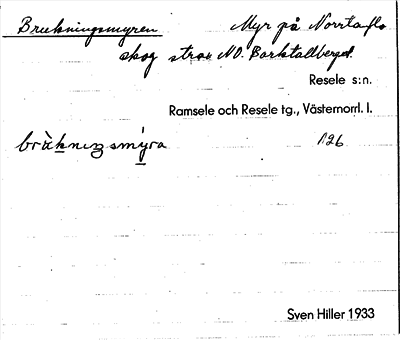 Brukningsmyren Myr på Norrtaflo
skog strax NO. Barktallberget.
Resele s:n.
Ramsele och Resele tg., Västernorrl. l.
bràkniŋsmýra 126
Sven Hiller 1933